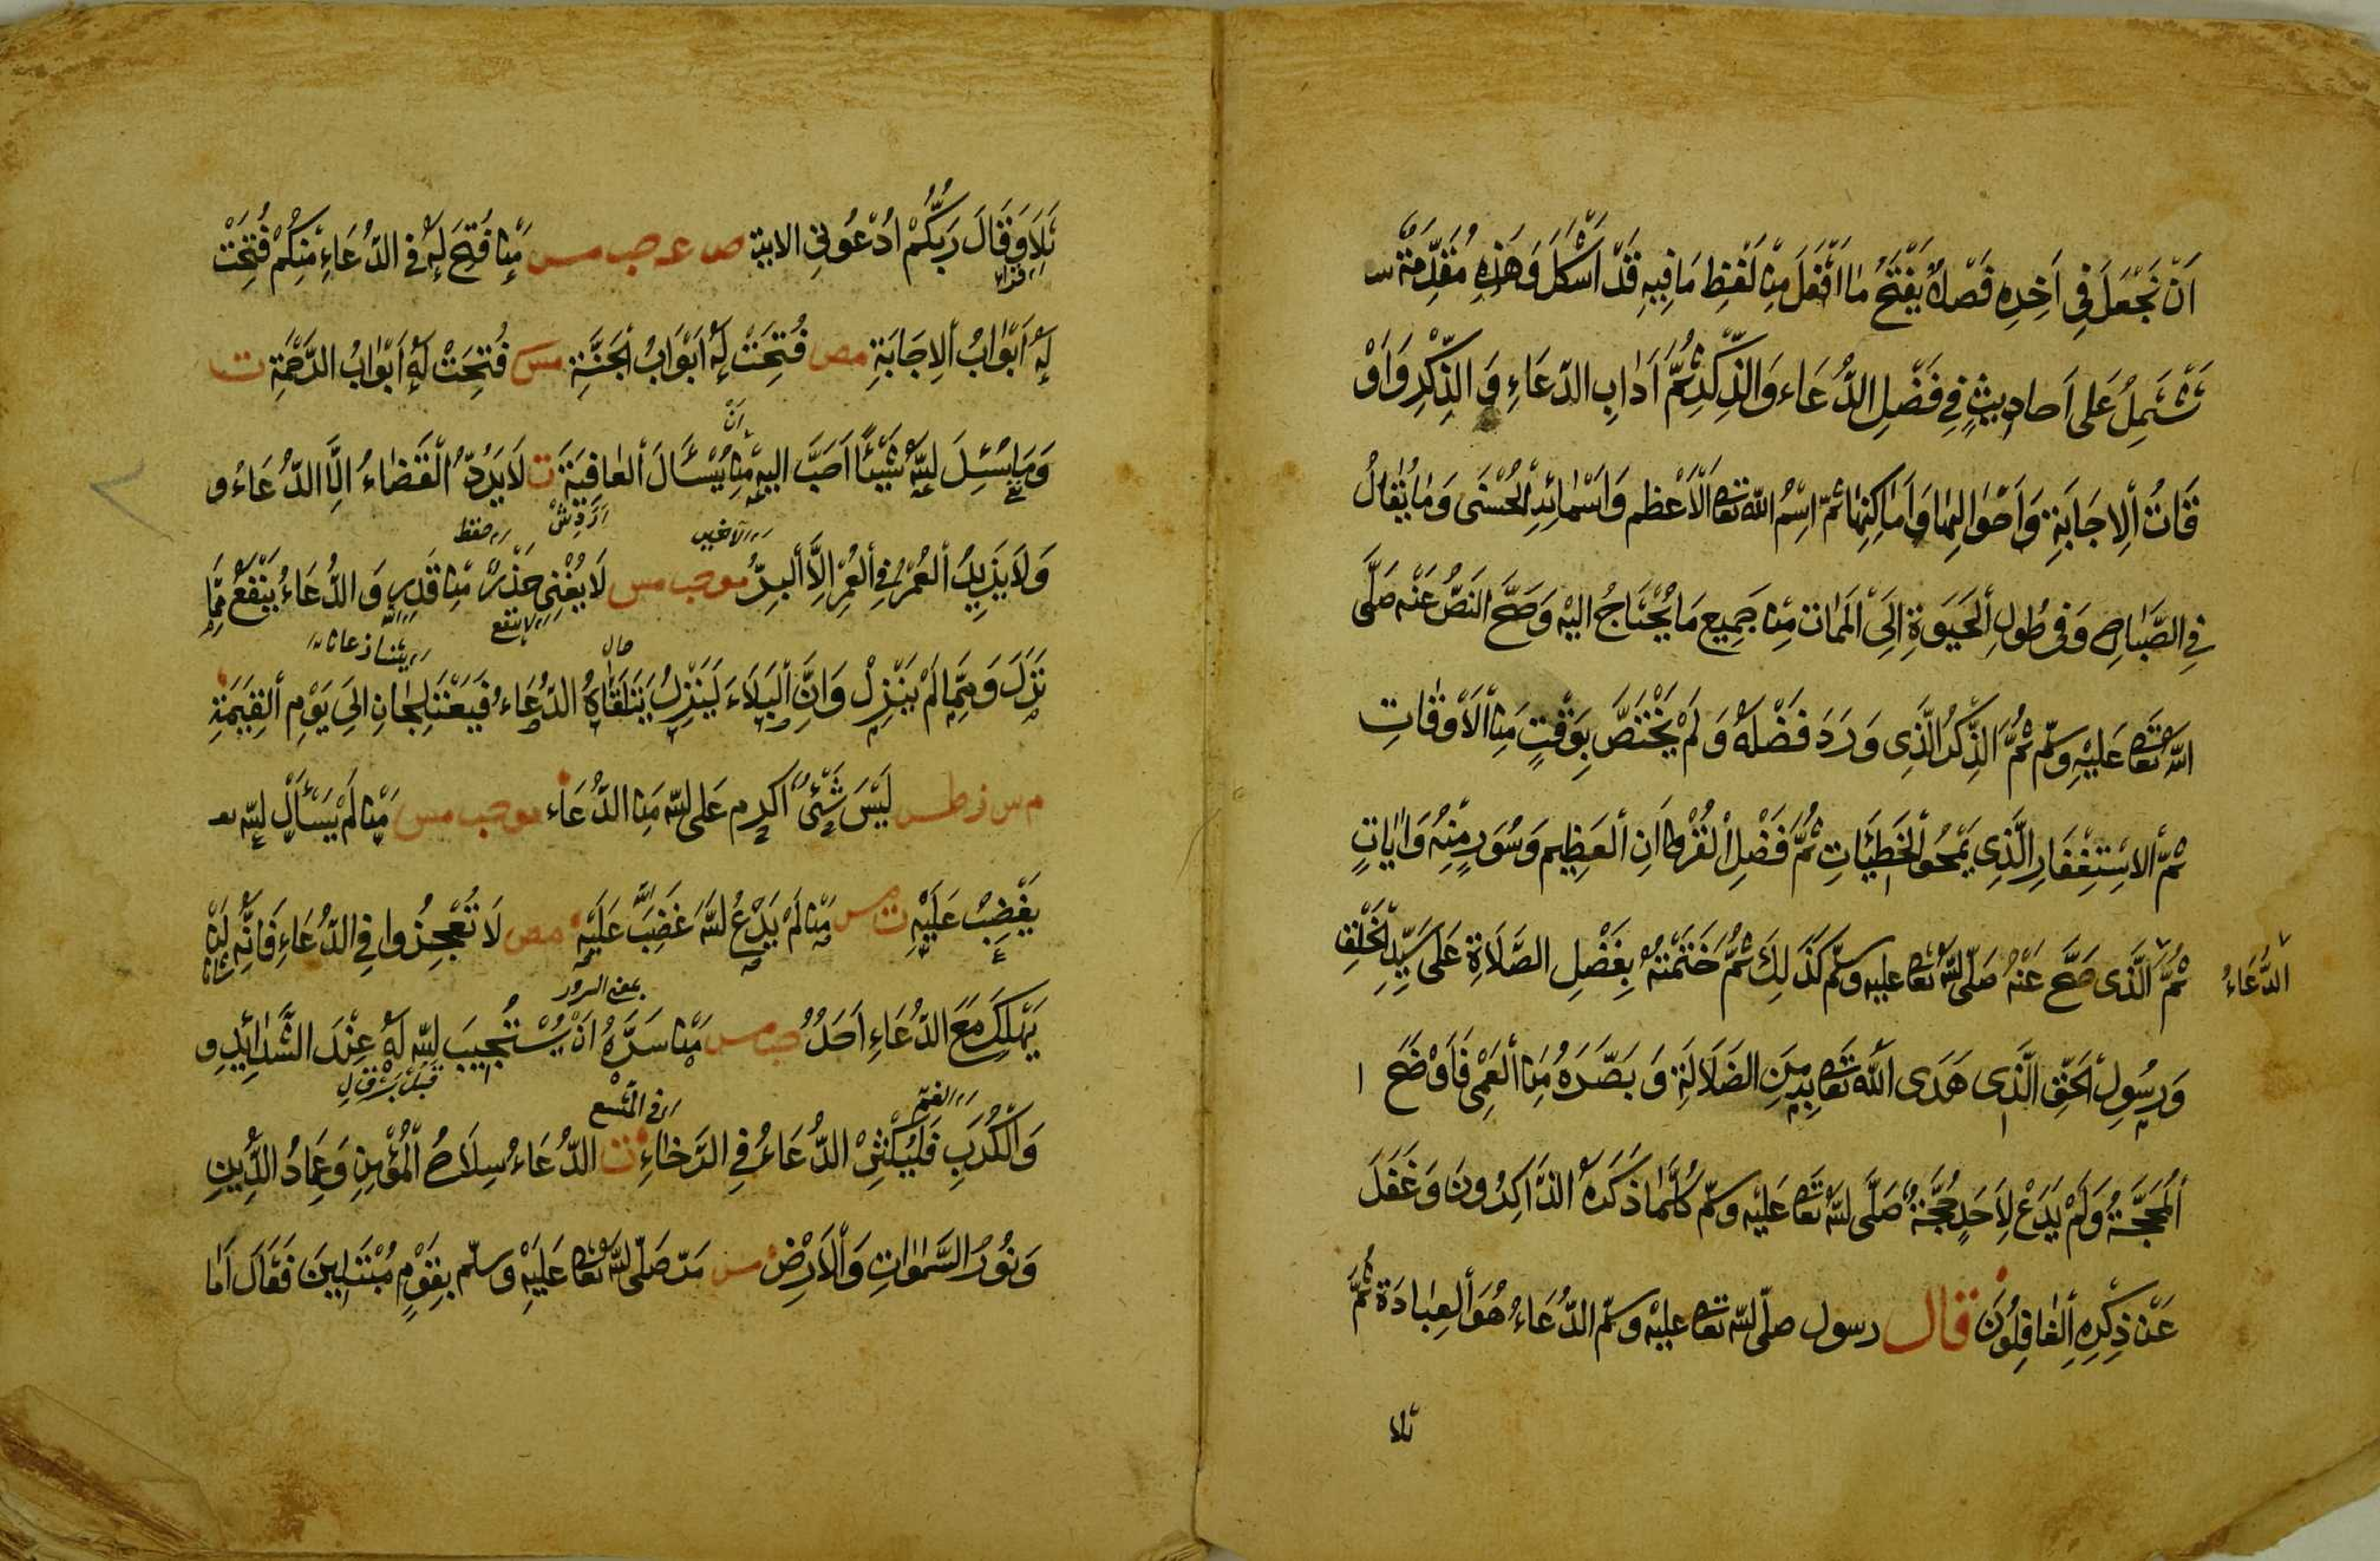 اَنْ نَجْعَلَ فِى اَخِرِهِ فَصْلاً يَفْتَحُ مَا اقْفَلَ مِنْ لَفْظِ مَا فِيهِ قَدْ اَشْكَلَ وَهٰذِهِ مُقَدِّمَةٌ
تَشْتَمِلُ عَلى اَحاديثٍ فِى فَضْلِ الدُّعَاء وَالذِّكْرِ ثُمَّ اَدَابِ الدّعَاءِ وَ الذِّكْرِ وَاَوْ
قَاتُ اْلاِجَابَةِ وَاَحْوَالِهٰا وَاَمَاكِنِهٰا ثمّ اسْمُ اللّه تعا الْاَعْظم وَاَسْمٰائِهِ الْحُسْنٰى وَمٰا يُقٰالُ
فِى الصَّبٰاحِ وَفِى طُولِ اْلحَيٰوةِ اِلَى اْلمَمٰات مِنْ جَمِيعِ مَا يُحْتَاجُ اليْه وَصَحَّ النصّ عَنْه صَلَّى
اللّهُ تعَا عَلَيْهِ وسلّم ثُمَّ الذِّكْرُ الَّذِى وَرَدَ فَضْلُهُ وَ لَمْ يَخْتَصَّ بِوَقْتٍ مِنَ اْلاَوْقٰاتِ
ثمّ الاسْتِغْفَارِ الَّذِى يَمْحُو الْخَطِيْئَاتِ ثُمَّ فَضْلِ الْقُرْءانِ اْلعَظِيم وَسُوَرٍ مِنْهُ وَاٰيٰاتٍ
ثُمَّ الَّذى صَحَّ عَنْهُ صَلّى اللّهُ تعا عليه وسلّم كَذٰلِكَ ثُمَّ خَتَمْتُهُ بِفَضْلِ الصَّلَاةِ عَلى سَيِّدِ اْلخَلْقِ
الدُّعَاءُ
وَرسُولِ اْلحَقّ الَّذِى هَدَى اللّه تعَا بِهِ مِنَ الضَلَالَةِ وَ بَصَّرَهُ مِنَ اْلعَمٰى فَاَوْضَحَ ا
اْلمَحَجَّةُ وَلَمْ يَدَعْ لِاَحَدٍ حُجَّةً صَلَّى اللّهُ تعَا عَلَيْه وسلّم كُلَّمٰا ذَكَرَهُ الذَّاكِرُونَ وَغَفَلَ
عَنْ ذِكْرِهِ اْلغٰافِلُونَ قال رسول صلّى اللّه تعا عليْه وسلّم الدُّعَاءُ هُوَ اْلعِبٰادَة ثُمَّ
تلا
تَلاَ وَقَالَ رَبُّكُمْ اُدْعُونِى الاية ص عه حب مس مَنْ فُتِحَ لَهُ فى الدُّعَاءِ مِنْكُمْ فُتِحَتْ
لَهُ اَبْوٰابُ اْلاِجَابَةِ مص فُتِحَتْ لَهُ اَبْوٰابُ اْلجَنَّةِ مس فُتِحَتْ لَهُ اَبْوٰابُ الرَّحْمَةِ ت
اَنْ
وَمَا سُئِلَ اللّهُ شَيْئًا اَحَبَّ اليهِ مِنْ يُسْئَالَ اْلعٰافِيَةَ ت لَا يَرُدّ الْقَضٰاءُ اِلَّا الدُّعَاءُ و
وَلَا يَزِيدُ اْلعُمْرُ فِى اْلعُمْرِ اِلَّا اْلبِرُّ ت وحب مس لَا يُغْنِى حَذَرٌ مِنْ قَدَرٍ وَ الدُّعَاءُ يَنْفَعُ مِمَّا
لاينفع
نَزَلَ وَمِمَّا لَمْ يَنْزِلْ وَاِنَّ اْلبَلَاءَ لَيَنْزِلُ يَتَلَقَّاهُ الدُّعَاء فَيَعْتَلِجَانِ الىَ يَوْمِ اْلقِيٰمَةِ
م س ز طس لَيْسَ شَيْئٌ اكْرم عَلى اللّه مِنَ الدُّعَاءِ ت وحب مس مَنْ لَمْ يَسْأَلِ اللّه
يَغْضِبْ عَلَيْهِ ت مس مَنْ لَمْ يَدْعُ اللّهَ غَضِبَ اللّه عَلَيْهِ مص لَا تَعْجِزُوا فِى الدُّعَاءِ فَاِنَّه لَنْ
يَهْلِكَ مَعَ الدُّعَاءِ اَحَدٌ حب مس مَنْ سَرَّهُ اَنْ يَسْتَجِيبَ اللّه لَهُ عِنْدَ الشَّدٰائِدِ و
بمعنى السرور
وَالْكُرَبِ فَلْيُكْثِرْ الدُّعَاءُ فِى الرَّخٰاءِ ت الدُّعَاءُ سِلَاحُ اْلمُؤْمِنِ وَعِمَادُ الدِّينِ
وَنُورُ السَّمٰوٰاتِ وَاْلاَرْضِ مس مَرّ صَلّى اللّهُ تعا عَلَيْهِ وسلّم بِقَوْمٍ مُبْتَلِينَ فَقَالَ اَمٰا